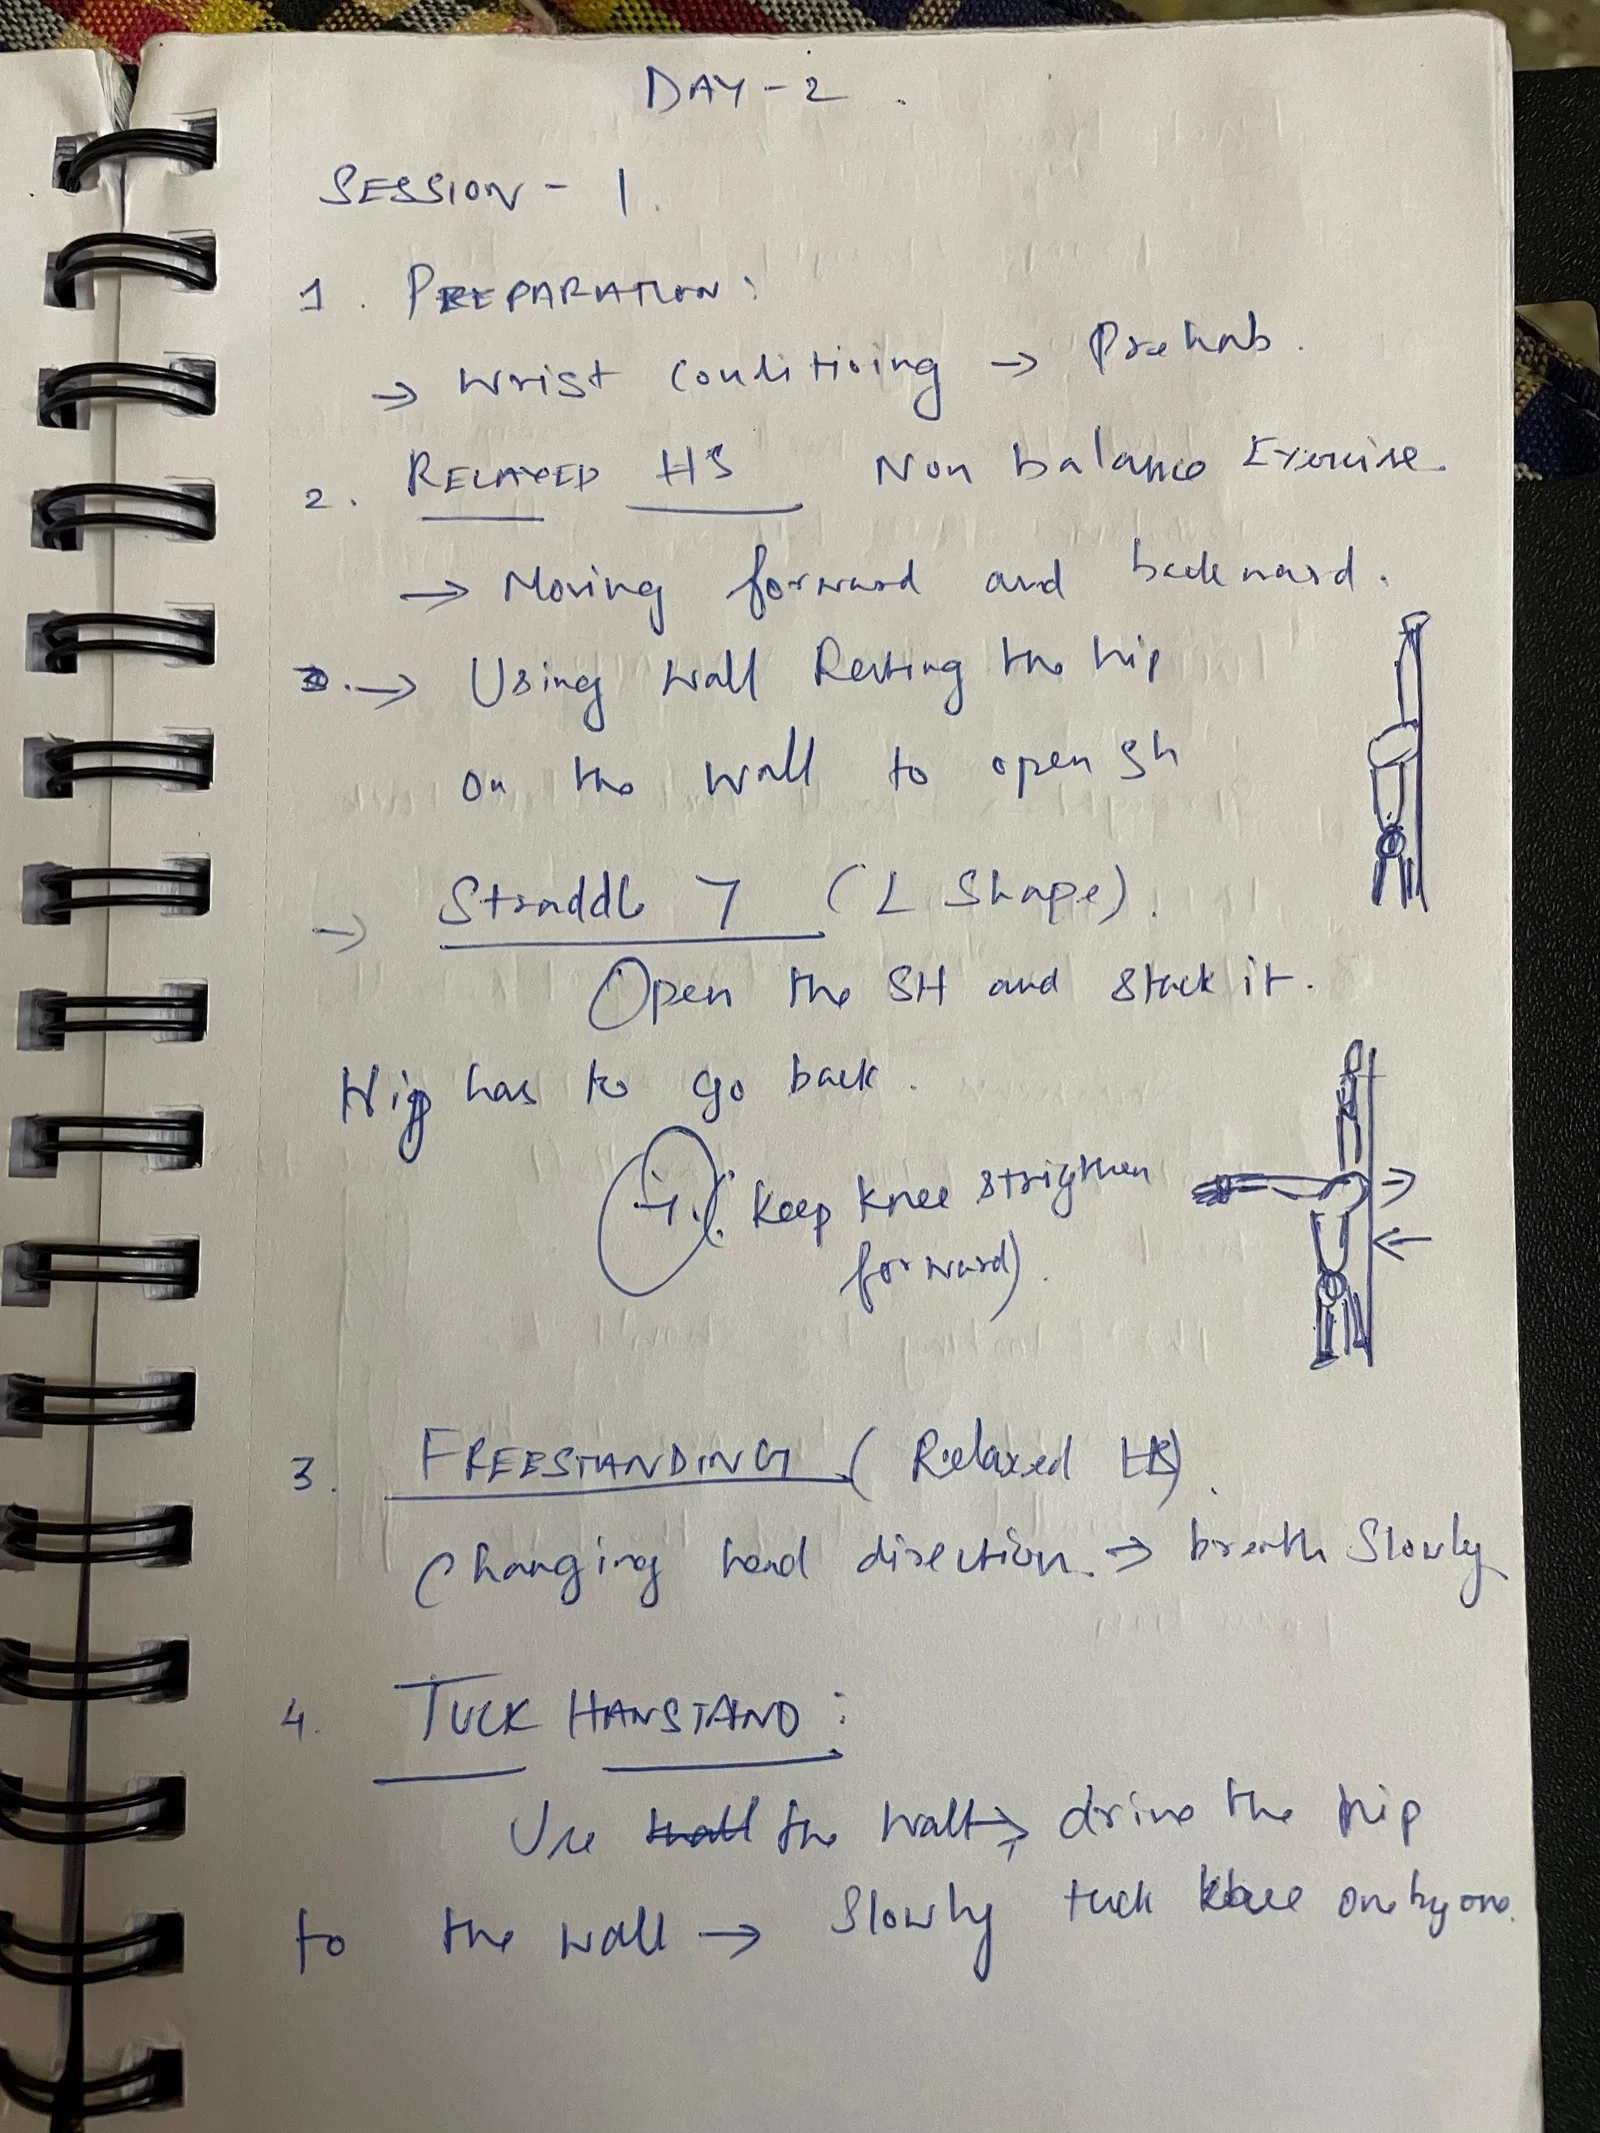 DAY - 2.
SESSION - 1.
1. PREPARATION:
→ Wrist Conditioning → Prehab.
2. RELAXED HS Non balance Exercise.
→ Moving forward and backward.
→ Using wall Resting the hip
on the wall to open sh
→ Straddle 7 (L Shape).
Open the SH and stack it.
Hip has to go back.
(: Keep knee strigthen
forward).
3. FREESTANDING (Relaxed HS).
Changing head direction. → breath Slowly
4. TUCK HANSTAND:
Use the wall → drive the hip
to the wall → Slowly tuck knee one by one.